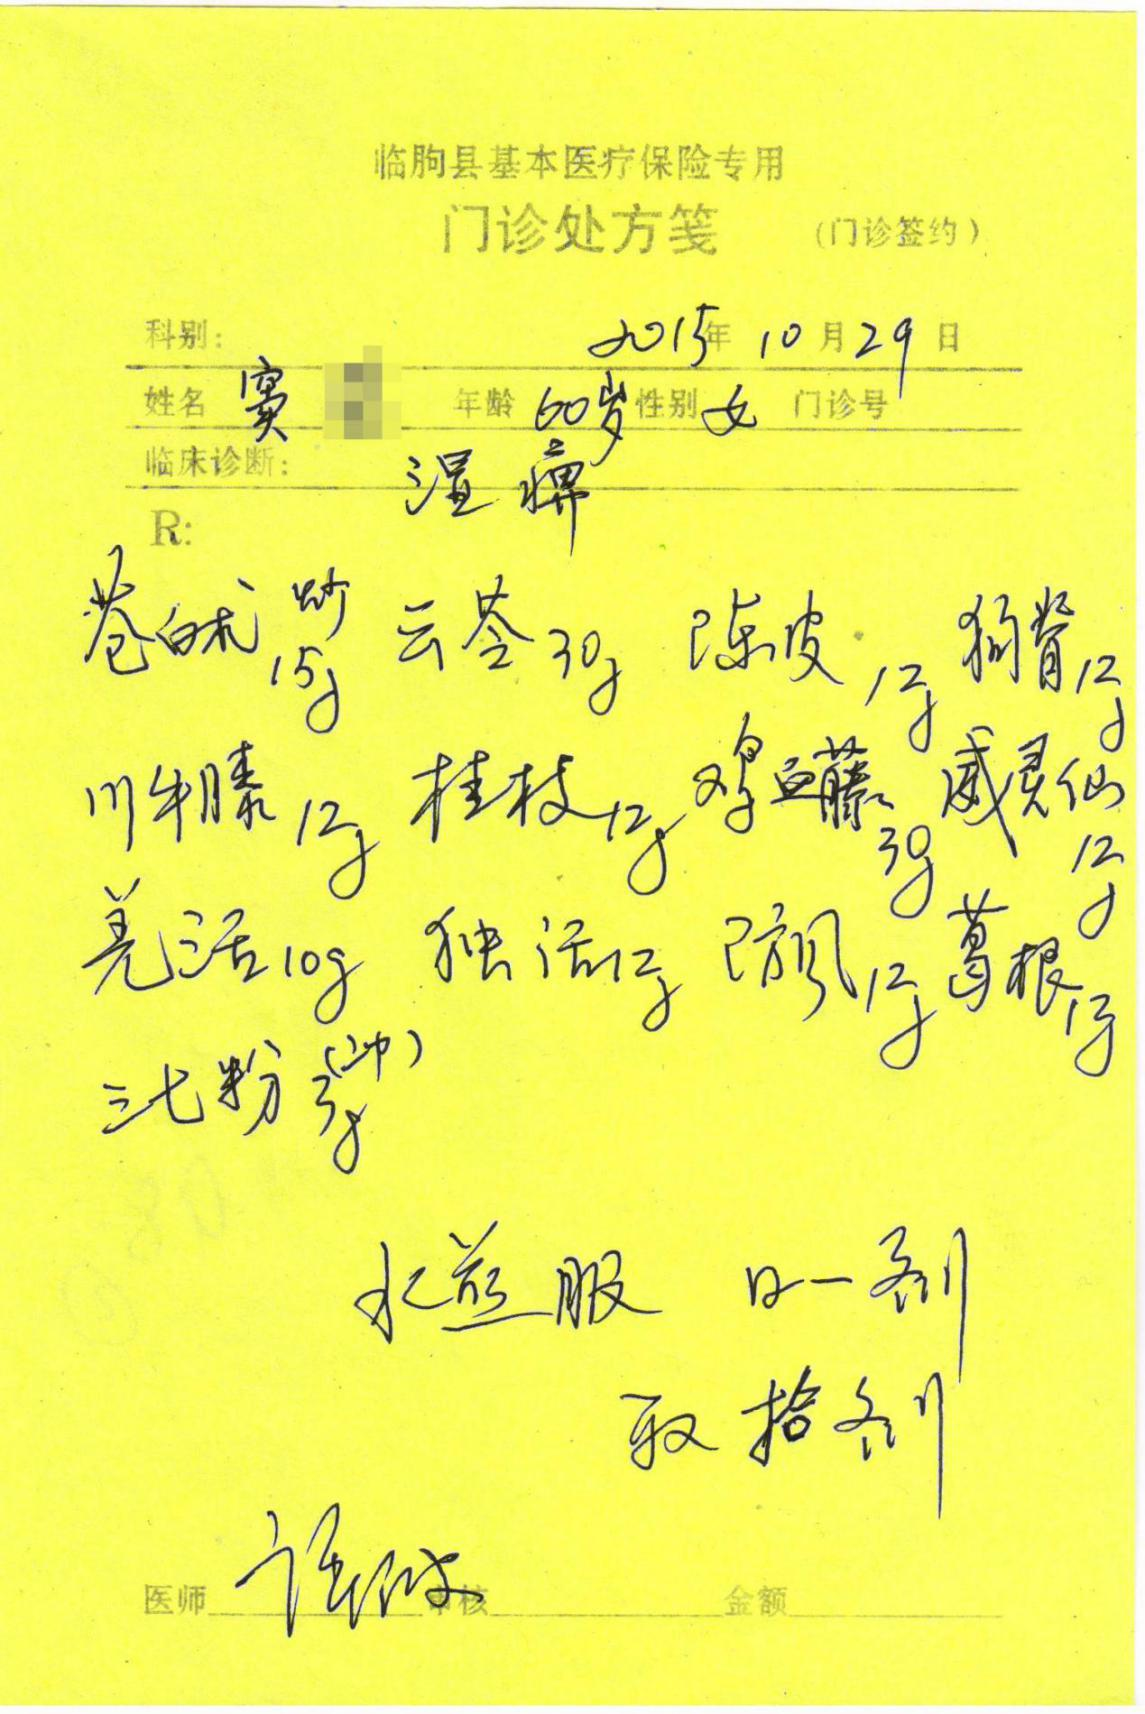 临朐县基本医疗保险专用
门诊处方笺 (门诊签约)
科别: 2015年 10月29日
姓名 窦 年龄 60岁 性别 女 门诊号
临床诊断: 湿痹
R:
苍白术炒15g 云苓30g 陈皮12g 狗脊12g
川牛膝12g 桂枝12g 鸡血藤30g 威灵仙12g
羌活10g 独活12g 防风12g 葛根
三七粉3g(冲)
水煎服 日一剂
取拾剂
医师 审核 金额